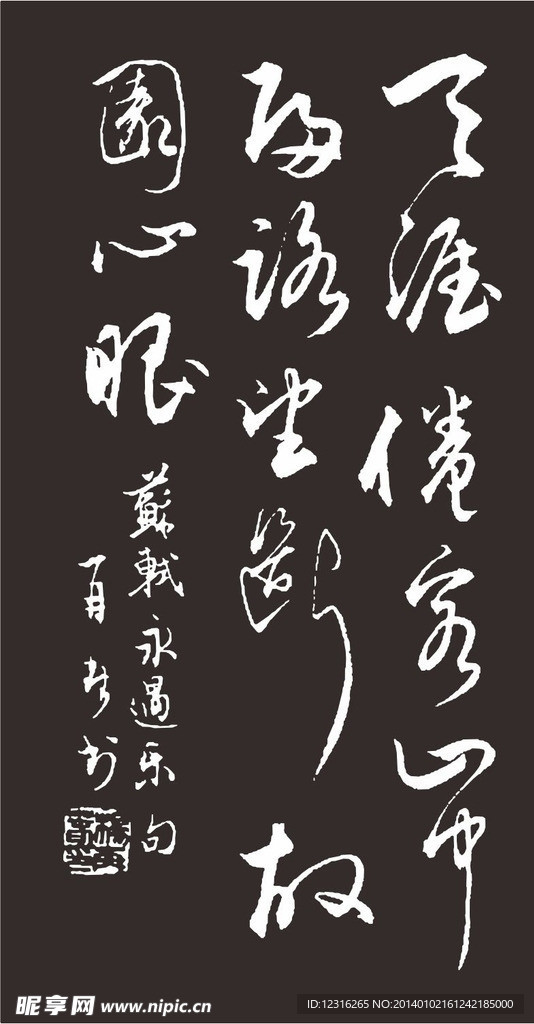 天涯倦客山中
歸路望斷故
園心眼
蘇軾永遇乐句
書
昵享网 www.nipic.cn
ID:12316265 NO:20140102161242185000